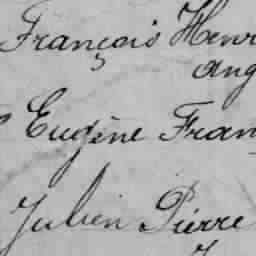 François Henr
Aug
Eugène Fran
Julien Pierre